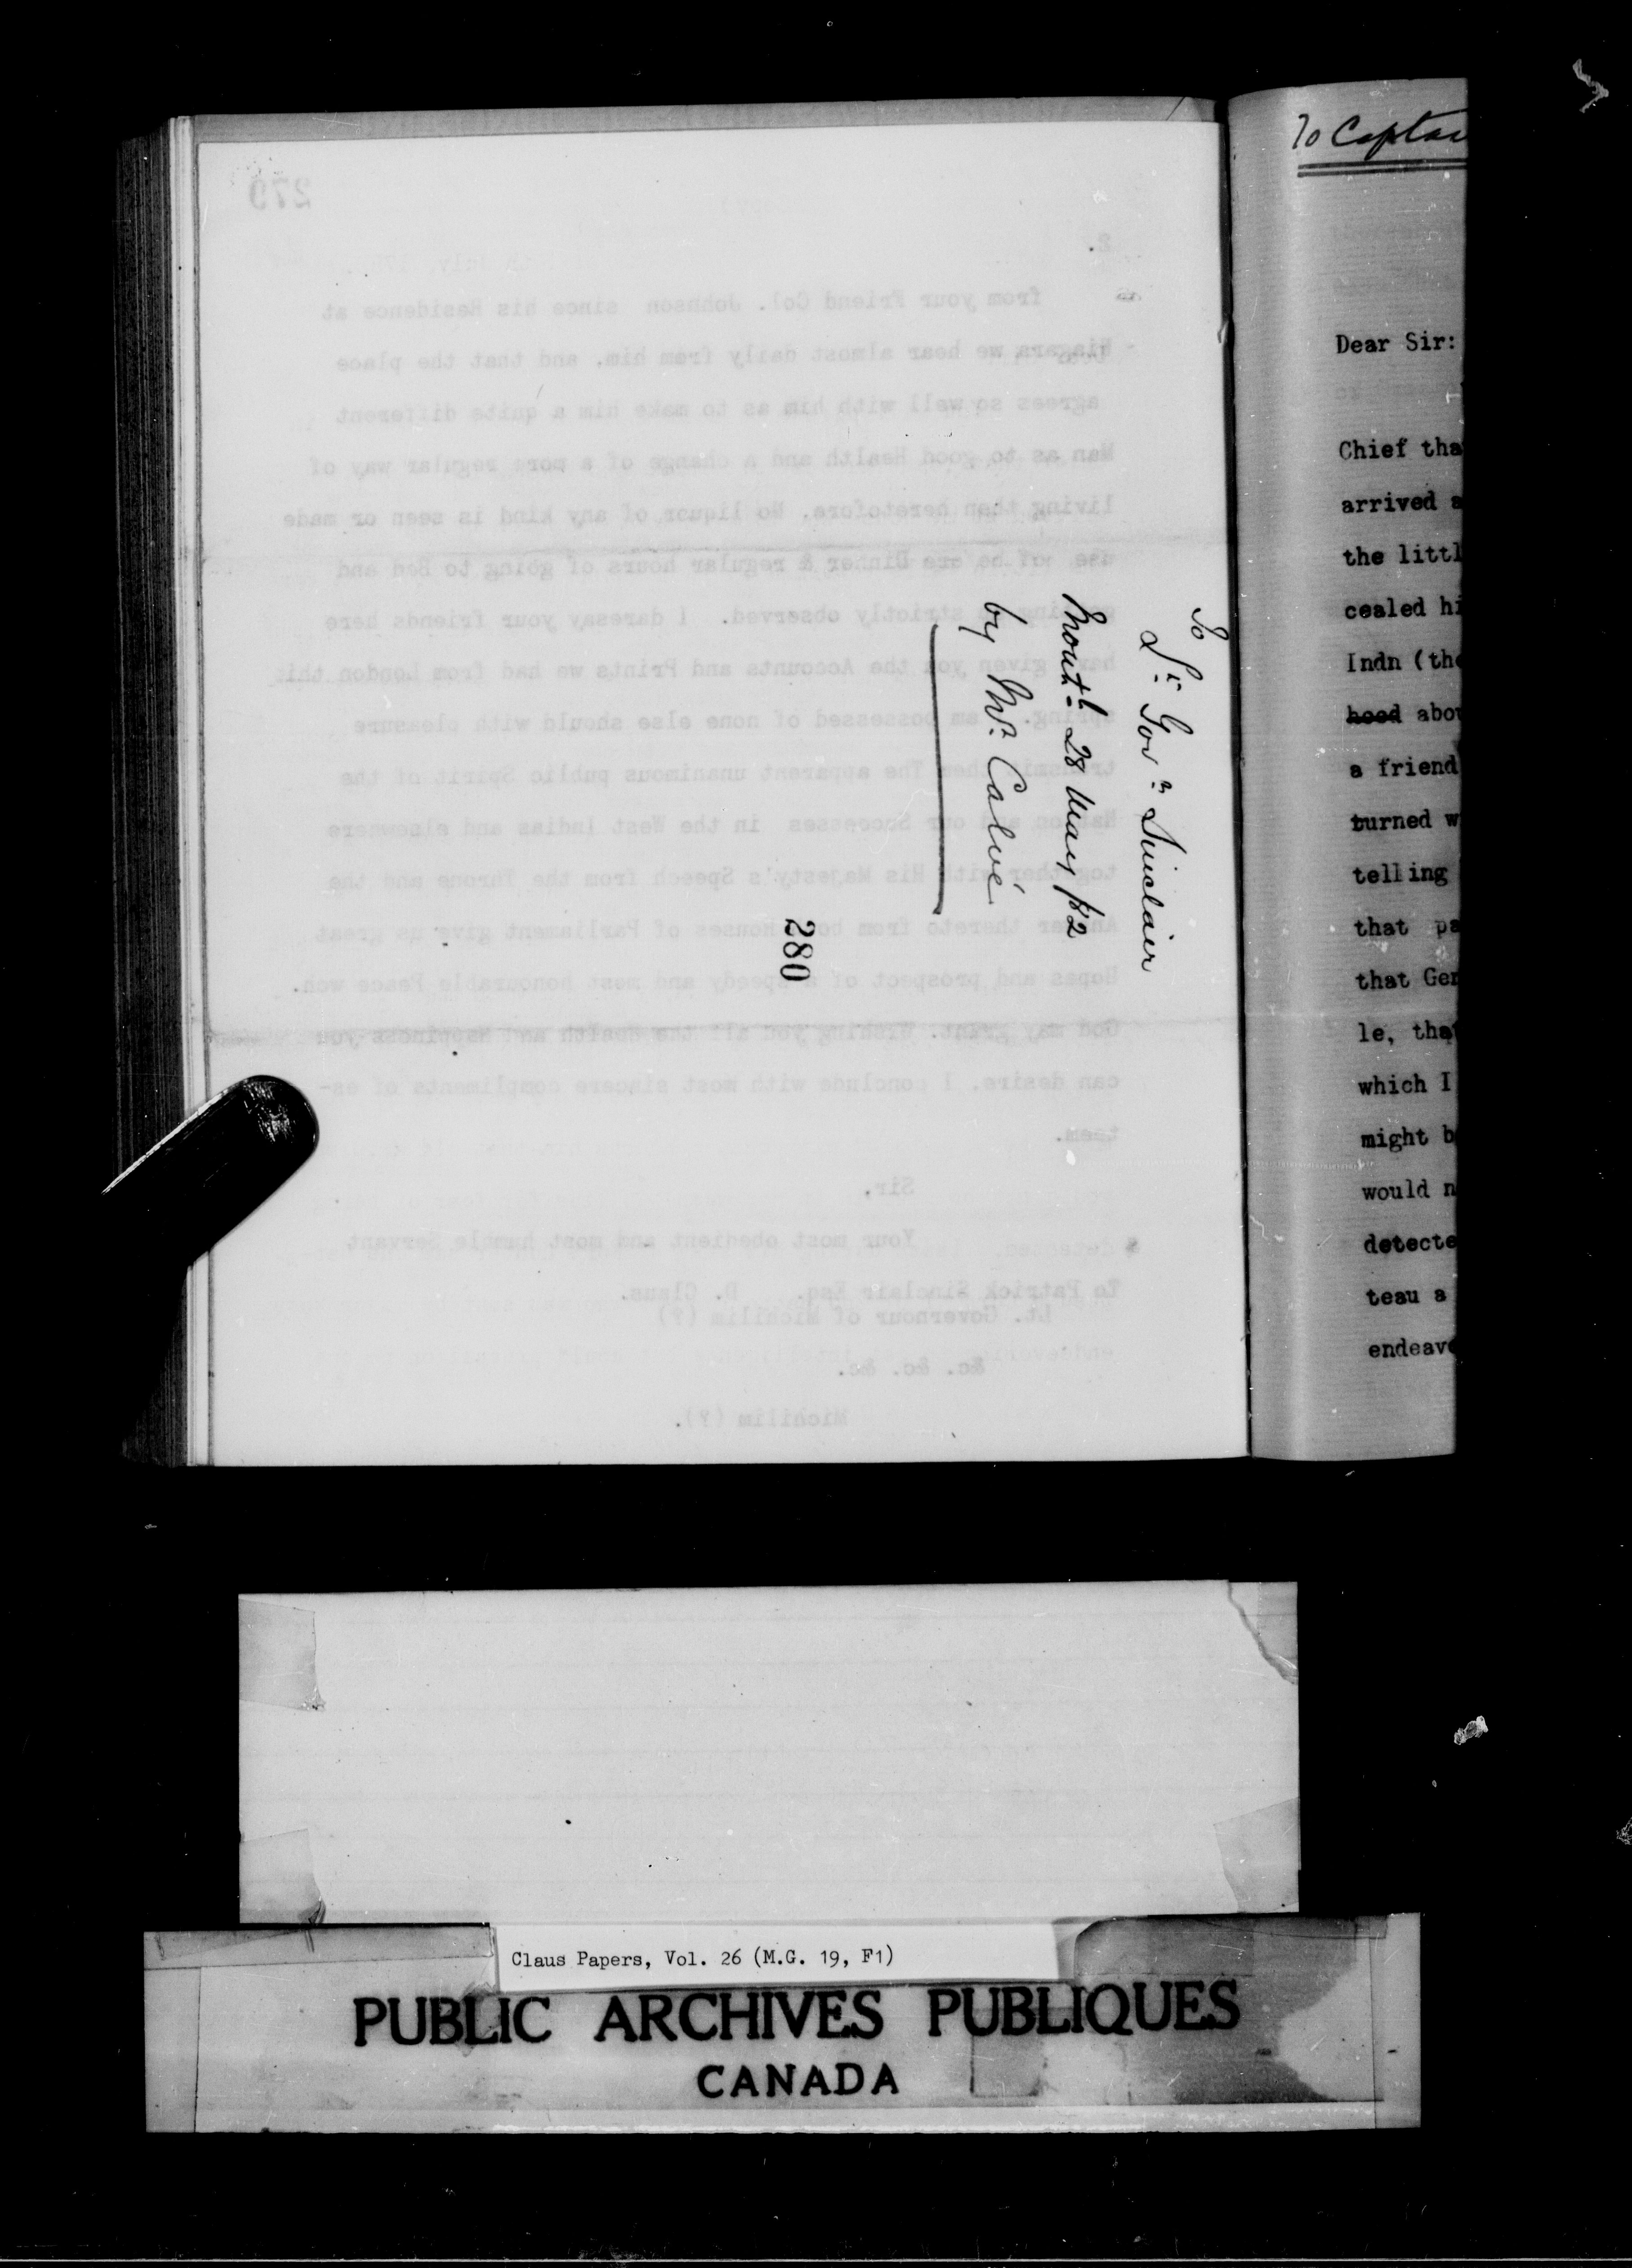 To
Lt. Govr. Sinclair
Montl 28 May /82
by Mr. Calvé
280
279
2.
from your Friend Col. Johnson since his Residence at
Niagara we hear almost daily from him. and that the place
agrees so well with him as to make him a quite different
Man as to good Health and a change of a more regular way of
living than heretofore. No liquor of any kind is seen or made
use of before Dinner & regular hours of going to Bed and
strictly observed. I daresay your friends here
have given you the Accounts and Prints we had from London this
spring. I am possessed of none else should with pleasure
transmit them The apparent unanimous public Spirit of the
Nation and our Successes in the West Indias and elsewhere
together with His Majesty's Speech from the Throne and the
Answer thereto from both Houses of Parliament give us great
Hopes and prospect of a speedy and most honourable Peace wch.
God may grant. Wishing you all the Health and Happiness you
can desire. I conclude with most sincere compliments of es-
teem.
Sir.
Your most obedient and most humble Servant
To Patrick Sinclair Esq. D. Claus.
Lt. Governour of Michilim (?)
&c. &c. &c.
Michilim (?).
To Captai
Dear Sir:
Chief tha
arrived a
the littl
cealed hi
Indn (the
hood abou
a friend
turned w
telling
that pa
that Gen
le, that
which I
might b
would n
detecte
teau a
endeavo
Claus Papers, Vol. 26 (M.G. 19, F1)
PUBLIC ARCHIVES PUBLIQUES
CANADA